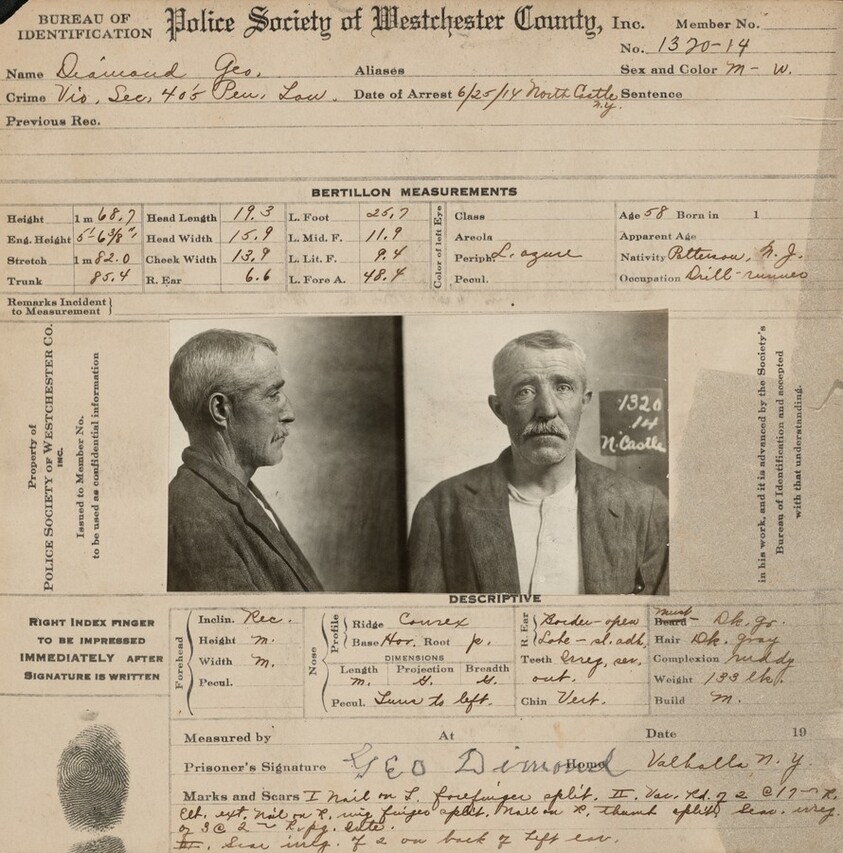 BUREAU OF IDENTIFICATION Police Society of Westchester County, Inc. Member No.
No. 1320-14
Name Diamond Geo. Aliases Sex and Color M - W.
Crime Vio. Sec. 405 Pen. Law. Date of Arrest 6/25/14 North Castle N.Y. Sentence
Previous Rec.
BERTILLON MEASUREMENTS
Height 1 m 68.7 Head Length 19.3 L. Foot 25.7 Color of left Eye Class Age 58 Born in 1
Eng. Height 5'-6 3/8" Head Width 15.9 L. Mid. F. 11.9 Areola Apparent Age
Stretch 1 m 82.0 Cheek Width 13.9 L. Lit. F. 9.4 Periph. L. azure Nativity Patterson, N. J.
Trunk 85.4 R. Ear 6.6 L. Fore A. 48.4 Pecul. Occupation Drill-runner
Remarks Incident to Measurement
Property of
POLICE SOCIETY OF WESTCHESTER CO. INC.
Issued to Member No.
to be used as confidential information
1320
14
N. Castle
in his work, and it is advanced by the Society's
Bureau of Identification and accepted
with that understanding.
DESCRIPTIVE
RIGHT INDEX FINGER
TO BE IMPRESSED
IMMEDIATELY AFTER
SIGNATURE IS WRITTEN
Forehead
Inclin. Rec.
Height m.
Width m.
Pecul.
Nose
Profile
Ridge Convex
Base Hor. Root p.
DIMENSIONS
Length Projection Breadth
m. G. G.
Pecul. Turns to left.
R. Ear
Border-open
Lobe - sl. adh.
Teeth Irreg, sev.
out.
Chin Vert.
Must
Beard Dk. gr.
Hair Dk. gray
Complexion ruddy
Weight 133 lb.
Build M.
Measured by At Date 19
Prisoner's Signature GEO Dimond Home Valhalla N. Y.
Marks and Scars I Nail on L. forefinger split. II. Vac. Rd. of 2 @ 17 R.
Elb. ext. Nail on R. finger split. Nail on R. thumb split. Scar irreg.
of 3 @ 2
III. Scar irreg. of 2 on back of left ear.